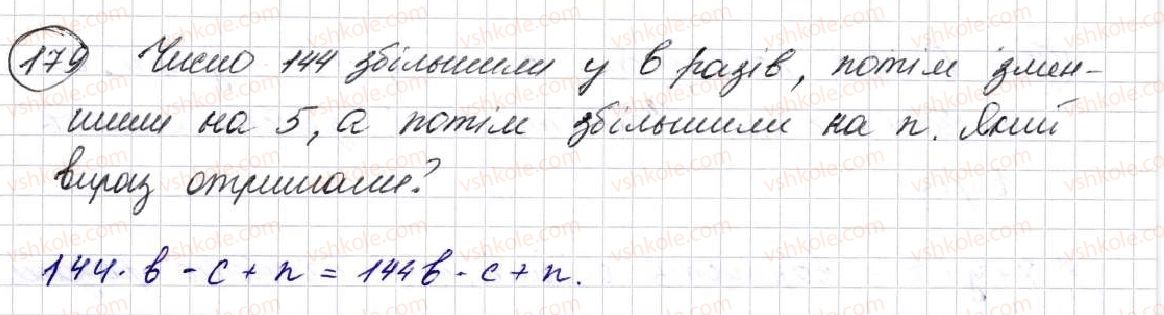 179 Число 144 збільшили у b разів, потім змен-
шили на 5, а потім збільшили на n. Який
вираз отримали?
144 · b - c + n = 144b - c + n.